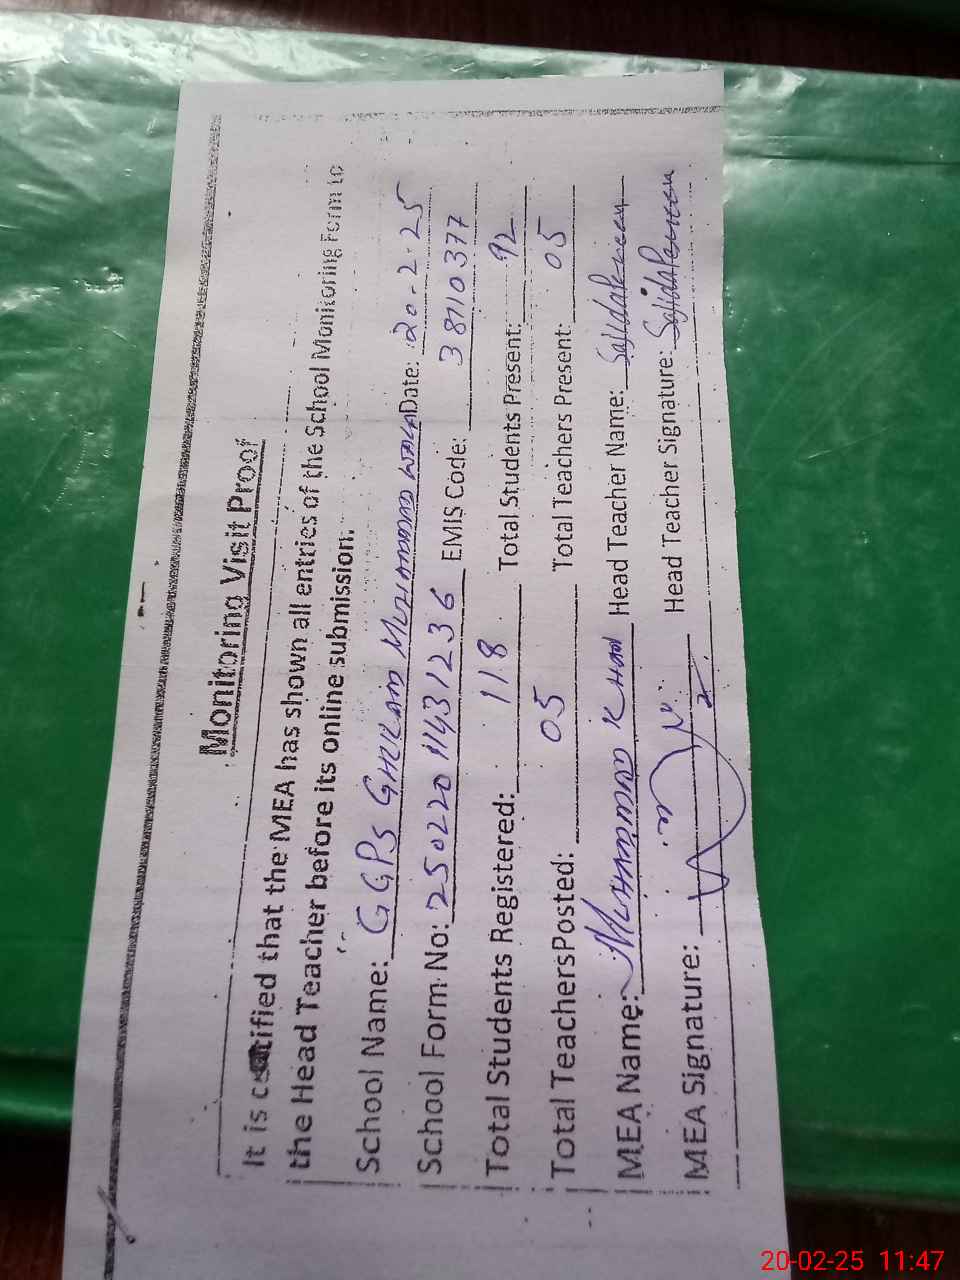 Monitoring Visit Proof
It is certified that the MEA has shown all entries of the School Monitoring Form to
the Head Teacher before its online submission.
School Name: GGPS GHULAM MUHAMMAD WALA Date: 20-2-25
School Form No: 25022011431236 EMIS Code: 38110377
Total Students Registered: 118 Total Students Present: 92
Total Teachers Posted: 05 Total Teachers Present: 05
MEA Name: MUHAMMAD KHAN Head Teacher Name: Sajida Perveen
MEA Signature: Head Teacher Signature: Sajida Perveen
20-02-25 11:47